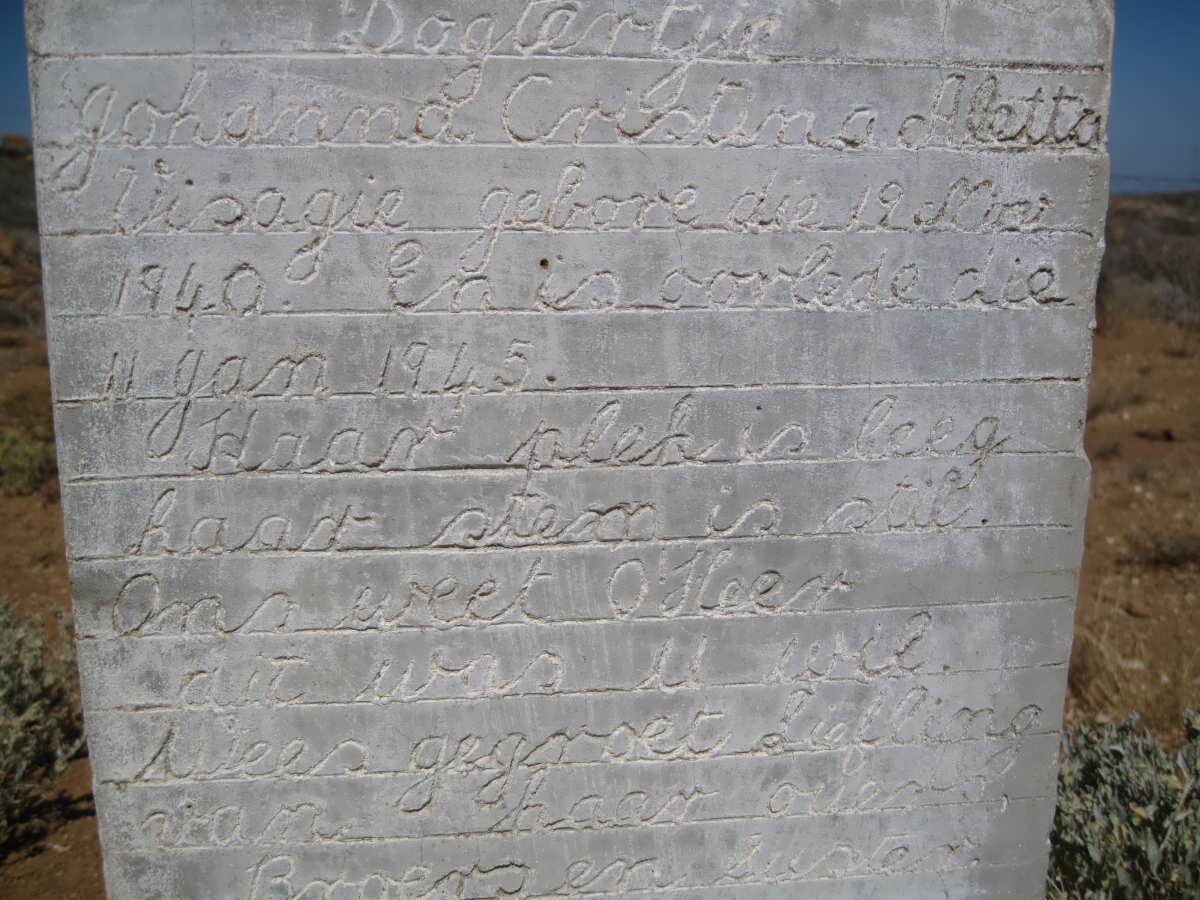 Dogtertjie
Johanna Cristina Aletta
Visagie gebore die 19 Mei
1940. En is oorlede die
11 Jan 1945.
Haar plek is leeg
haar stem is stil
Ons weet O'Heer
dit was U wil.
Wees gegroet Liefling
van haar ouers,
Broers en suster.